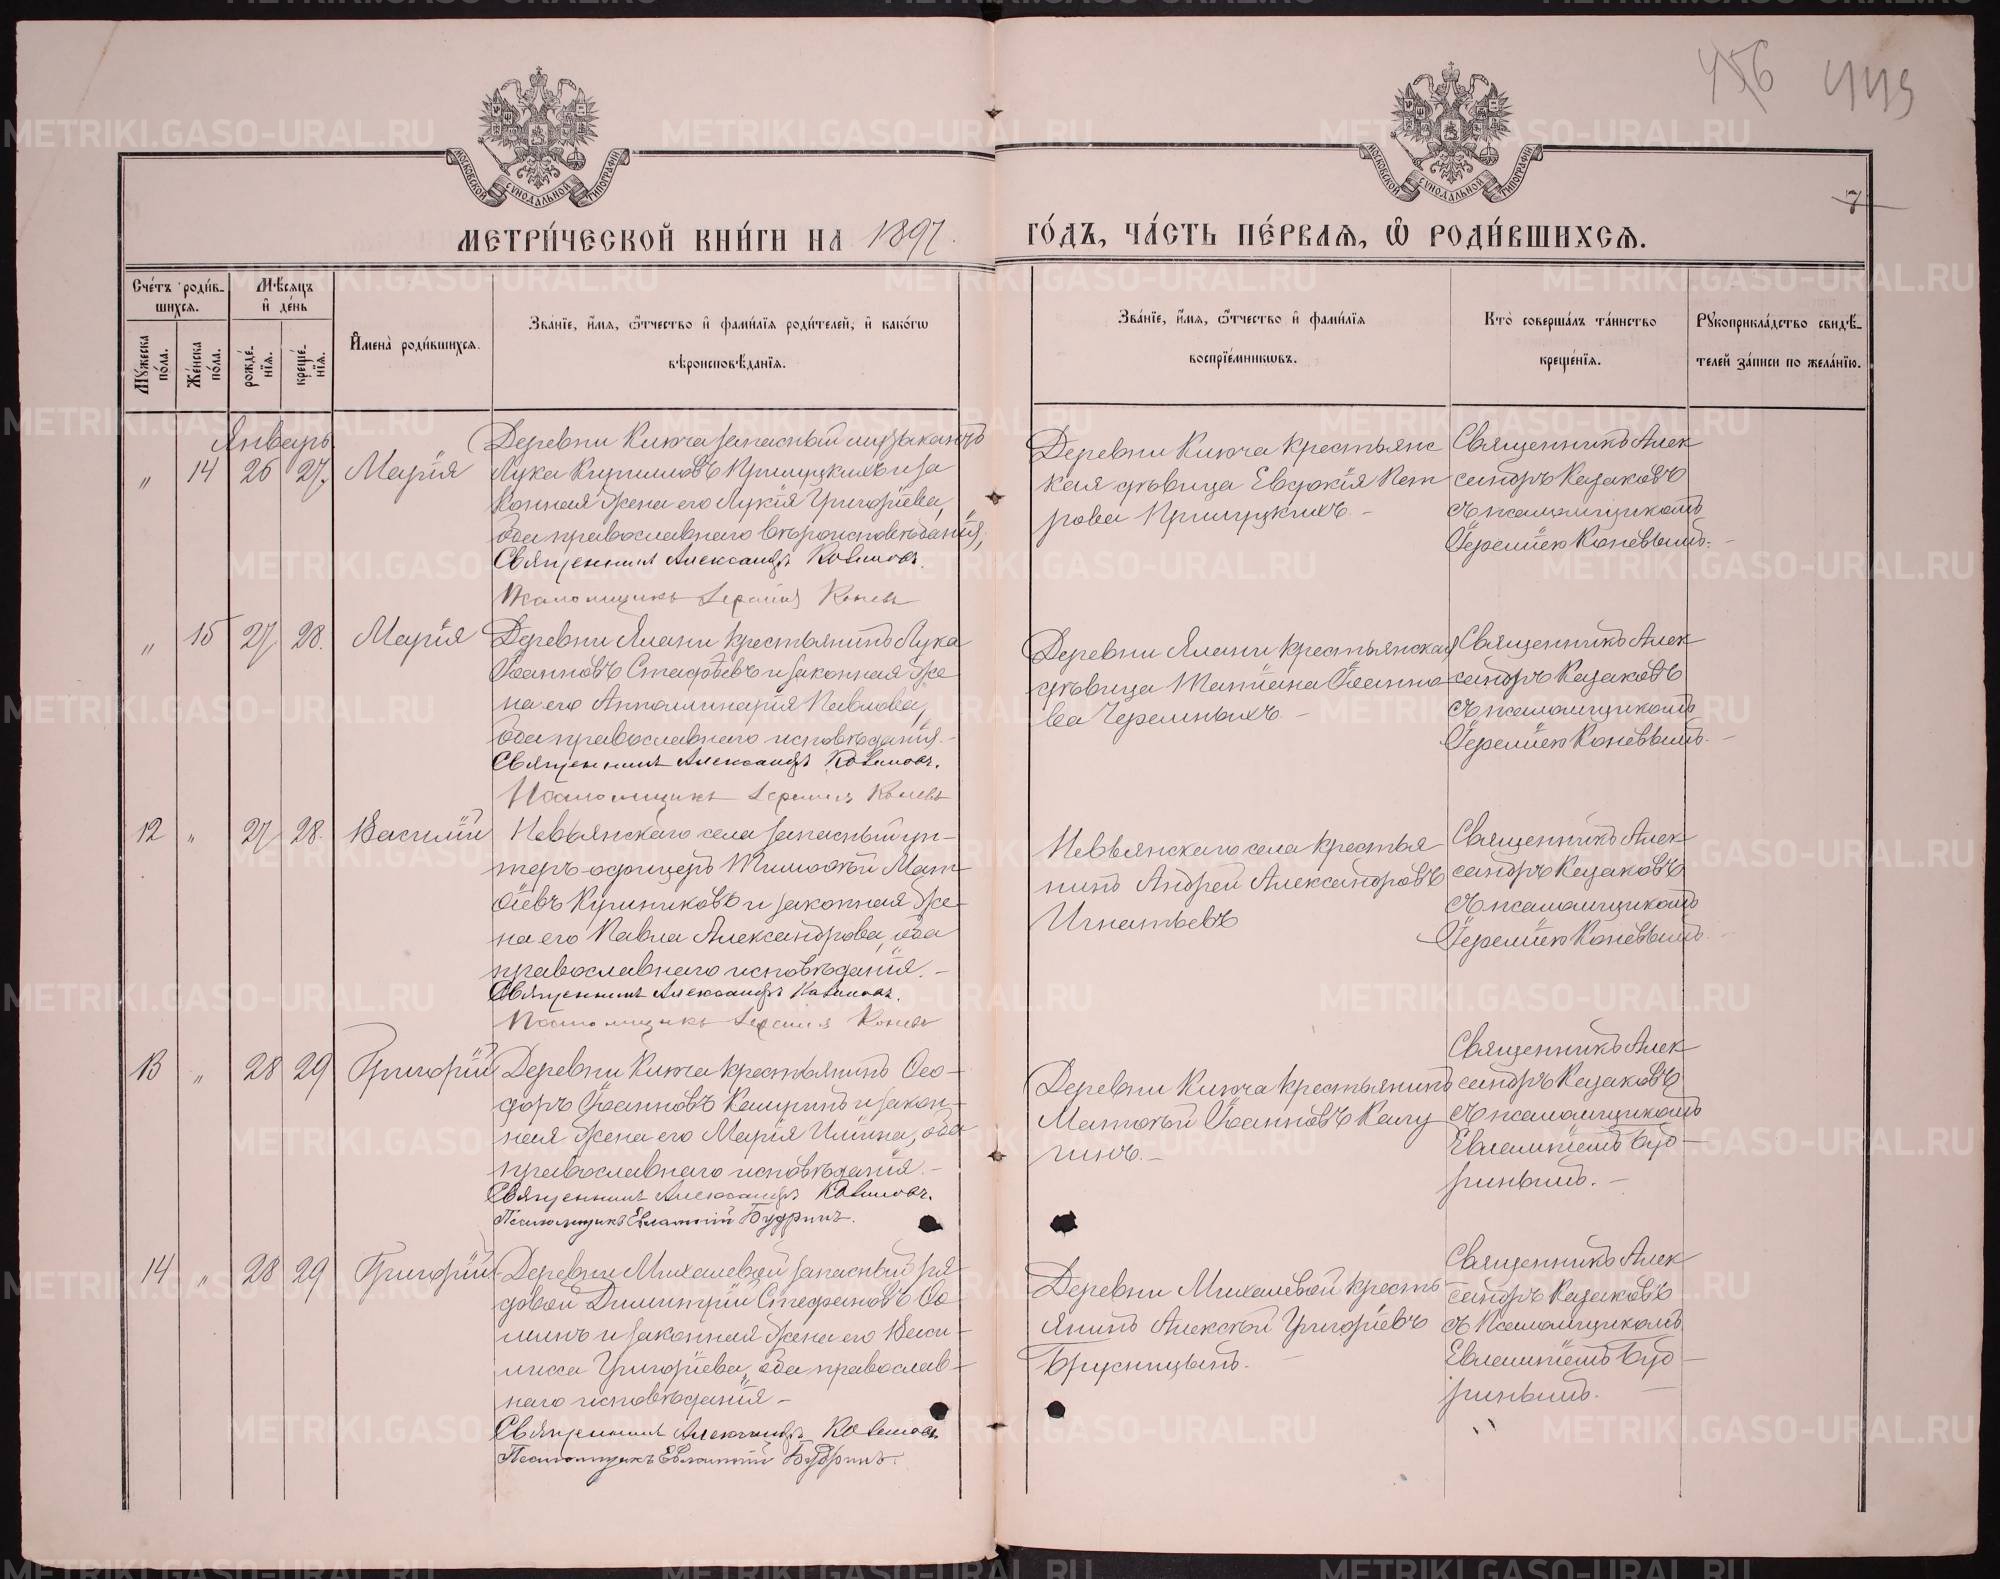 456 445
МОСКОВСКОЙ СѴНОДАЛЬНОЙ ТИПОГРАФІИ
МОСКОВСКОЙ СѴНОДАЛЬНОЙ ТИПОГРАФІИ
7
МЕТРИ́ЧЕСКОЙ КНИ́ГИ НА 1897.
ГО́ДЪ, ЧА́СТЬ ПЕ́РВАЯ, Ѡ РОДИ́ВШИХСЯ.
Сче́тъ роди́в-
шихся.
Мѣ́сяцъ
и҆ де́нь
Мꙋ́жеска по́ла.
Же́нска по́ла.
рожде́-нїя.
креще́-нїя.
И҆мена̀ роди́вшихся.
Зва́нїе, и҆́мя, ѻ҆́тчество и҆ фами́лїя роди́телей, и҆ како́гѡ
вѣроисповѣ́данїя.
Зва́нїе, и҆́мя, ѻ҆́тчество и҆ фами́лїя
воспрїе́мникѡвъ.
Кто̀ соверша́лъ та́инство
креще́нїя.
Рꙋкоприкла́дство свидѣ́-
телей за́писи по жела́нїю.
Январь
„ 14 26 27. Марія
Деревни Ключа запасный музыкантъ
Лука Кирилловъ Пришуцкихъ и за
конная жена его Лукія Григоріева,
оба православнаго вѣроисповѣданія,
Священникъ Александръ Казаковъ.
Псаломщикъ Іеремія Коневъ
Деревни Ключа крестьянс
кая дѣвица Евдокія Пет
рова Пришуцкихъ. –
Священникъ Алек
сандръ Казаковъ
съ псаломщикомъ
Іереміею Коневымъ. –
„ 15 27 28. Марія
Деревни Ялани крестьянинъ Лука
Іоанновъ и законная же
на его Апполлинарія Павлова,
оба православнаго исповѣданія. –
Священникъ Александръ Казаковъ.
Псаломщикъ Іеремія Коневъ
Деревни Ялани крестьянская
дѣвица Татіана Іоанно
ва Черемныхъ. –
Священникъ Алек
сандръ Казаковъ
съ псаломщикомъ
Іереміею Коневымъ. –
12 „ 27 28. Василій
Невьянскаго села запасный ун-
теръ-офицеръ Тимоѳей Мат
ѳіевъ и законная же-
на его Павла Александрова, оба
православнаго исповѣданія. –
Священникъ Александръ Казаковъ.
Псаломщикъ Іеремія Коневъ
Невьянскаго села крестья
нинъ Андрей Александровъ
Игнатьевъ
Священникъ Алек
сандръ Казаковъ
съ псаломщикомъ
Іереміею Коневымъ.
13 „ 28 29 Григорій
Деревни Ключа крестьянинъ Ѳео-
доръ Іоанновъ Калугинъ и закон-
ная жена его Марія Ильина, оба
православнаго исповѣданія. –
Священникъ Александръ Казаковъ.
Псаломщикъ Евлампій Будринъ.
Деревни Ключа крестьянинъ
Матѳей Іоанновъ Калу
гинъ. –
Священникъ Алек
сандръ Казаковъ
съ псаломщикомъ
Евлампіемъ Буд-
ринымъ. –
14 „ 28 29 Григорій
Деревни Михалевой запасный ря
довой Димитрій Стефановъ Ѳо
минъ и законная жена его Васи-
лисса Григоріева, оба православ-
наго исповѣданія –
Священникъ Александръ Казаковъ
Псаломщикъ Евлампій Будринъ.
Деревни Михалевой кресть
янинъ Алексѣй Григоріевъ
Брусницынъ. –
Священникъ Алек
сандръ Казаковъ
съ Псаломщикомъ
Евлампіемъ Буд-
ринымъ. –
METRIKI.GASO-URAL.RU